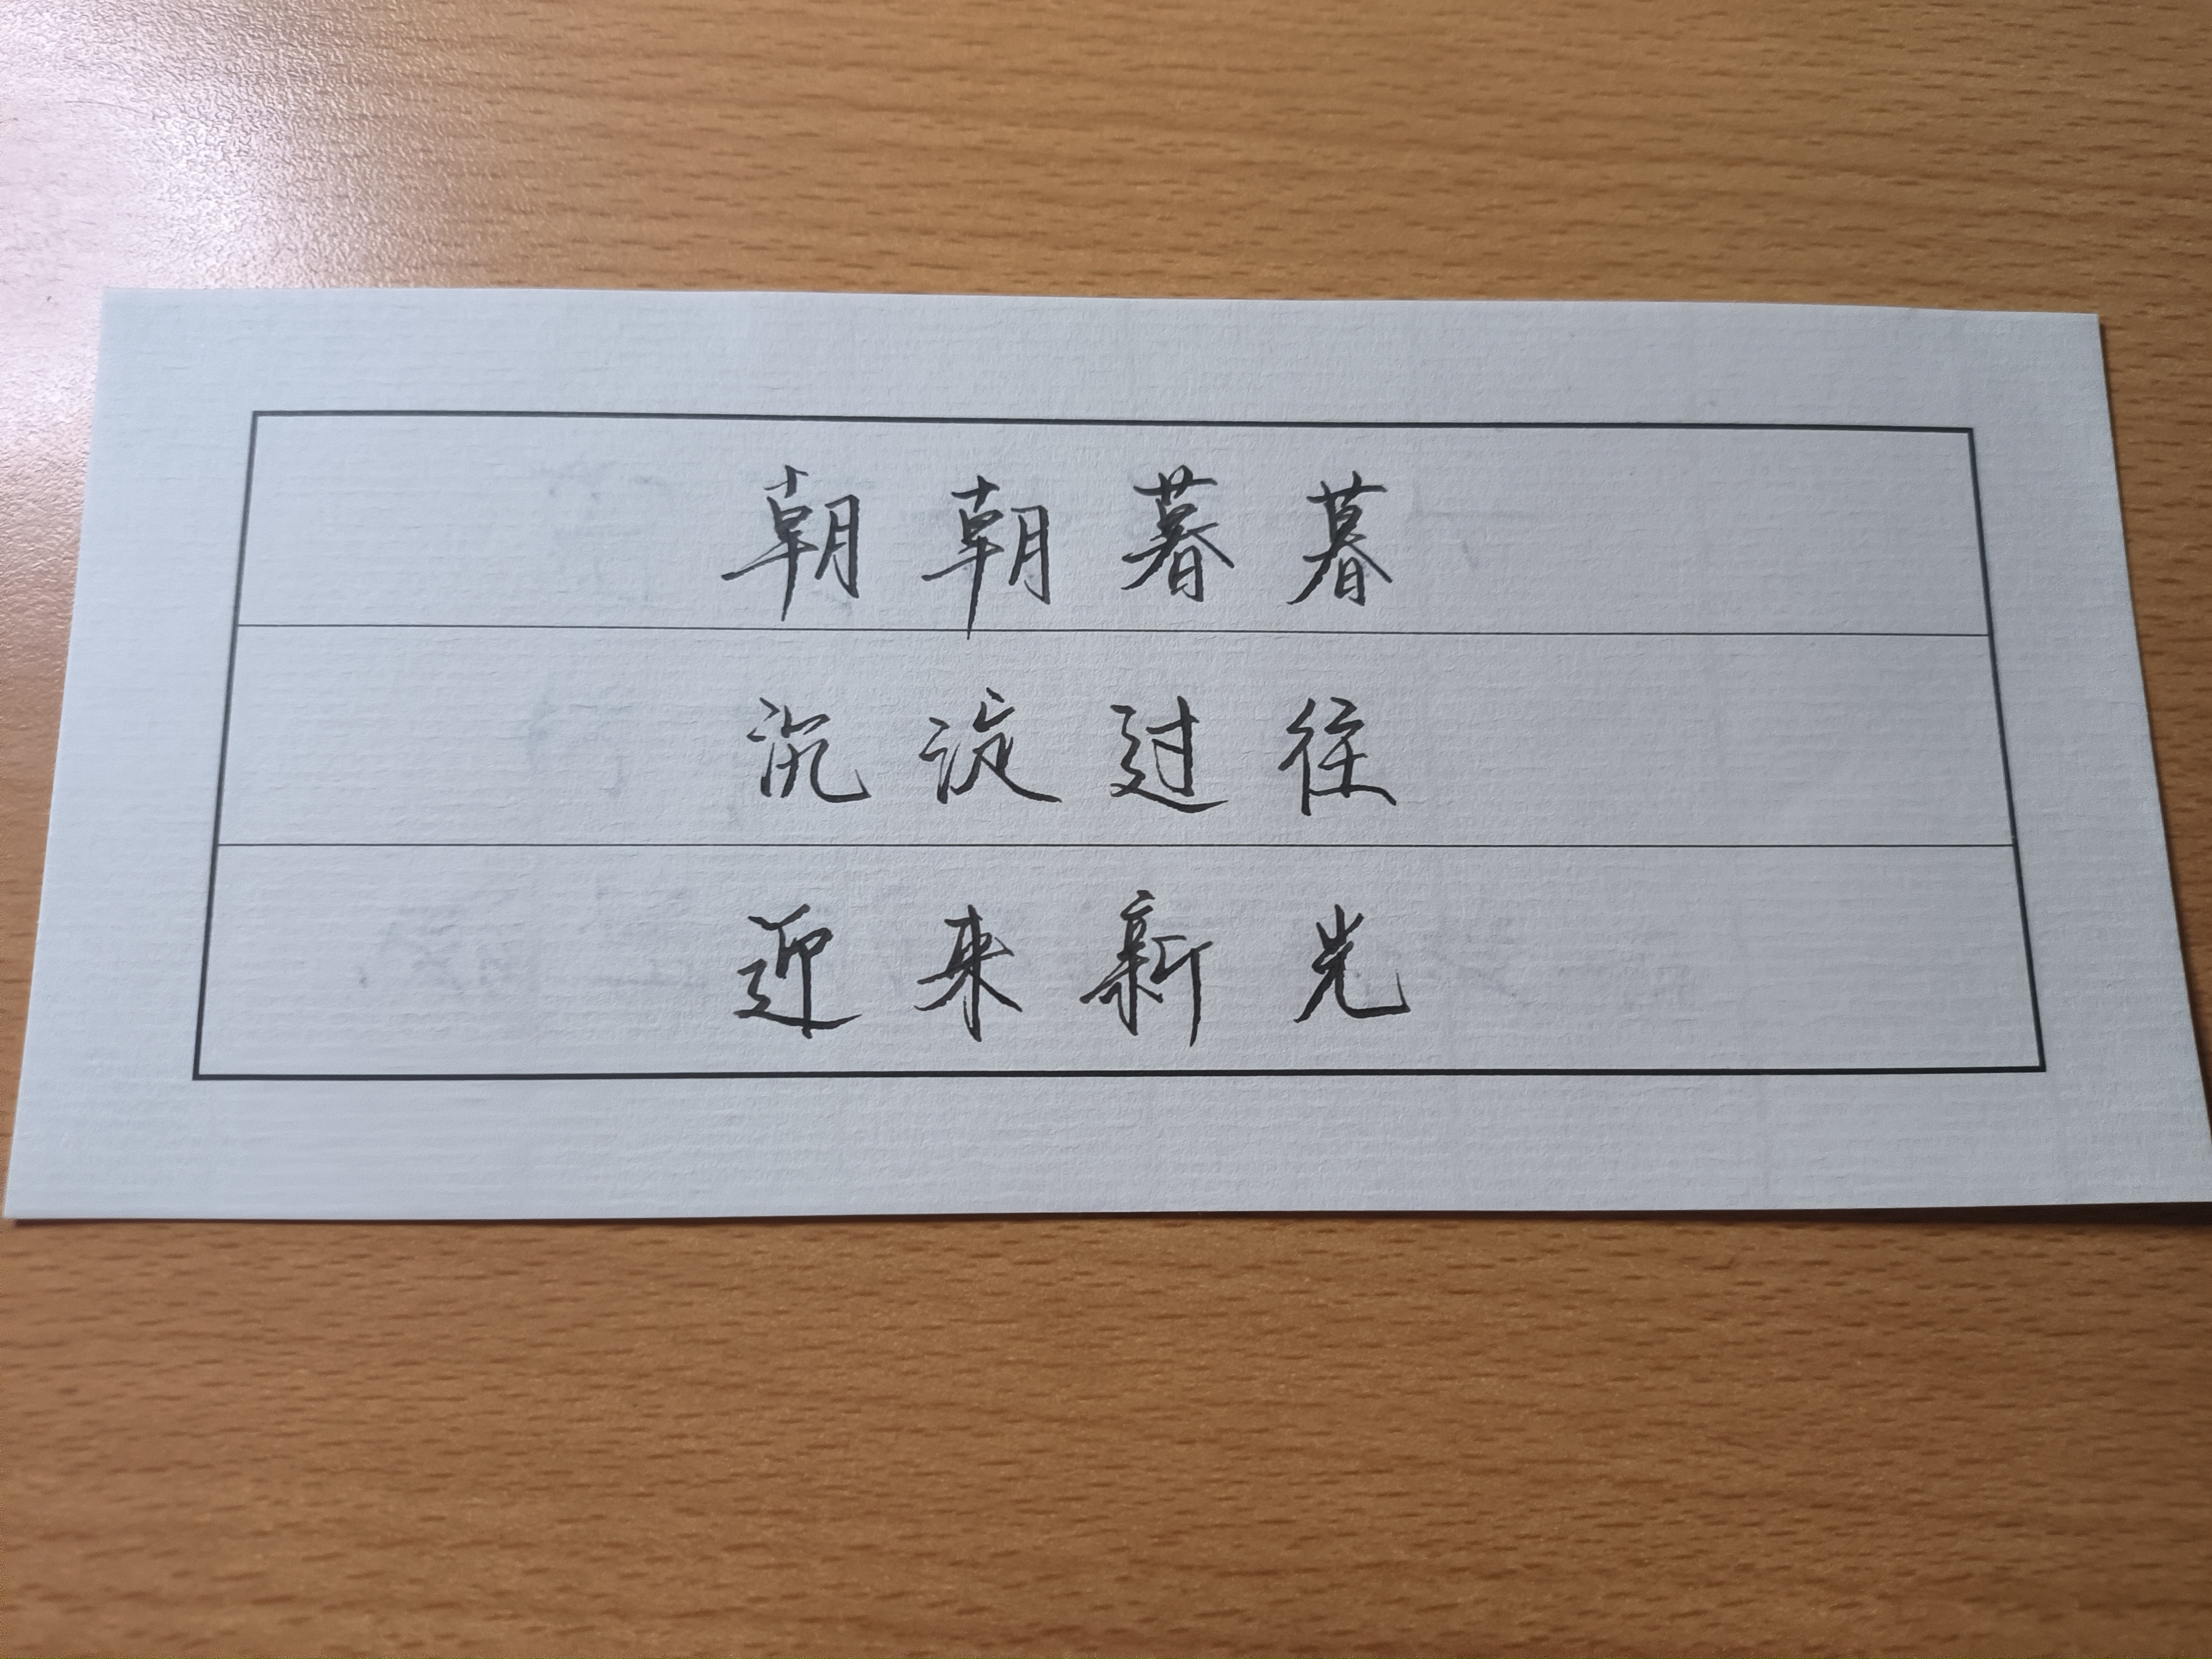 朝朝暮暮
沉淀过往
迎来新光